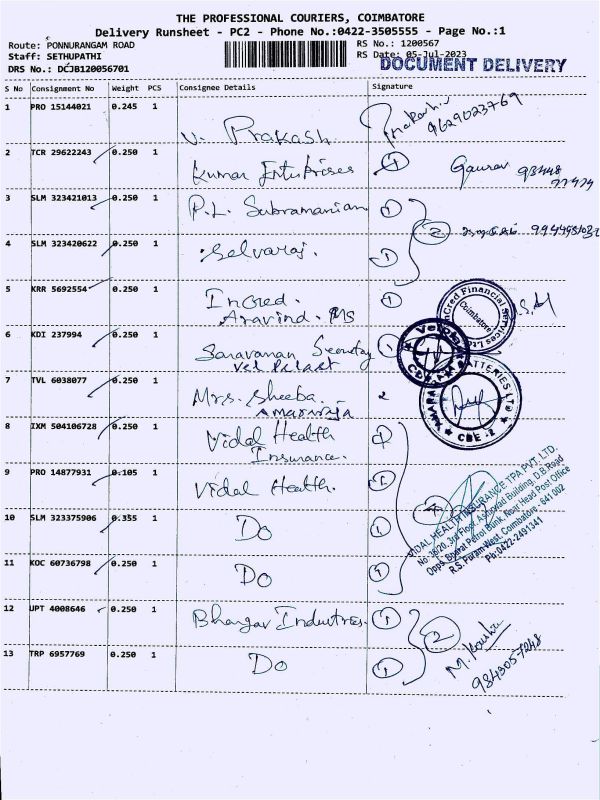 THE PROFESSIONAL COURIERS, COIMBATORE
Delivery Runsheet - PC2 - Phone No.:0422-3505555 - Page No.:1
Route: PONNURANGAM ROAD
RS No.: 1200567
Staff: SETHUPATHI
RS Date: 05-Jul-2023
DRS No.: DCJB120056701
DOCUMENT DELIVERY
S No Consignment No Weight PCS Consignee Details Signature
1 PRO 15144021 0.245 1 V. Prakash Prakash 9629023769
2 TCR 29622243 0.250 1 Kumar Enterprises 1 Gaurav
3 SLM 323421013 0.250 1 P.L. Subramanian 1
2
4 SLM 323420622 0.250 1 Selvaraj. 1
5 KRR 5692554 0.250 1 InCred. 1
Aravind. MS
InCred Financial Services Ltd
Coimbatore
6 KDI 237994 0.250 1 Saravanan Secretary 1
7 TVL 6038077 0.250 1 Mrs. Sheeba. 2
Amararaja
BATTERIES LTD
CBE - 2
8 IXM 504106728 0.250 1 Vidal Health 1
Insurance.
9 PRO 14877931 0.105 1 Vidal Health. 1
4
10 SLM 323375906 0.355 1 Do 1
11 KOC 60736798 0.250 1 Do 1
VIDAL HEALTH INSURANCE TPA PVT. LTD.
No. 36/20, 3rd Floor, Building, D.B.Road
Opp. Bharat Petrol Bunk, Near Head Post Office
R.S. Puram West, Coimbatore - 641 002
Ph:0422-2491341
12 UPT 4008646 0.250 1 Bhangav Industries. 1
2
13 TRP 6957769 0.250 1 Do 1
M. Koushi
9843057248